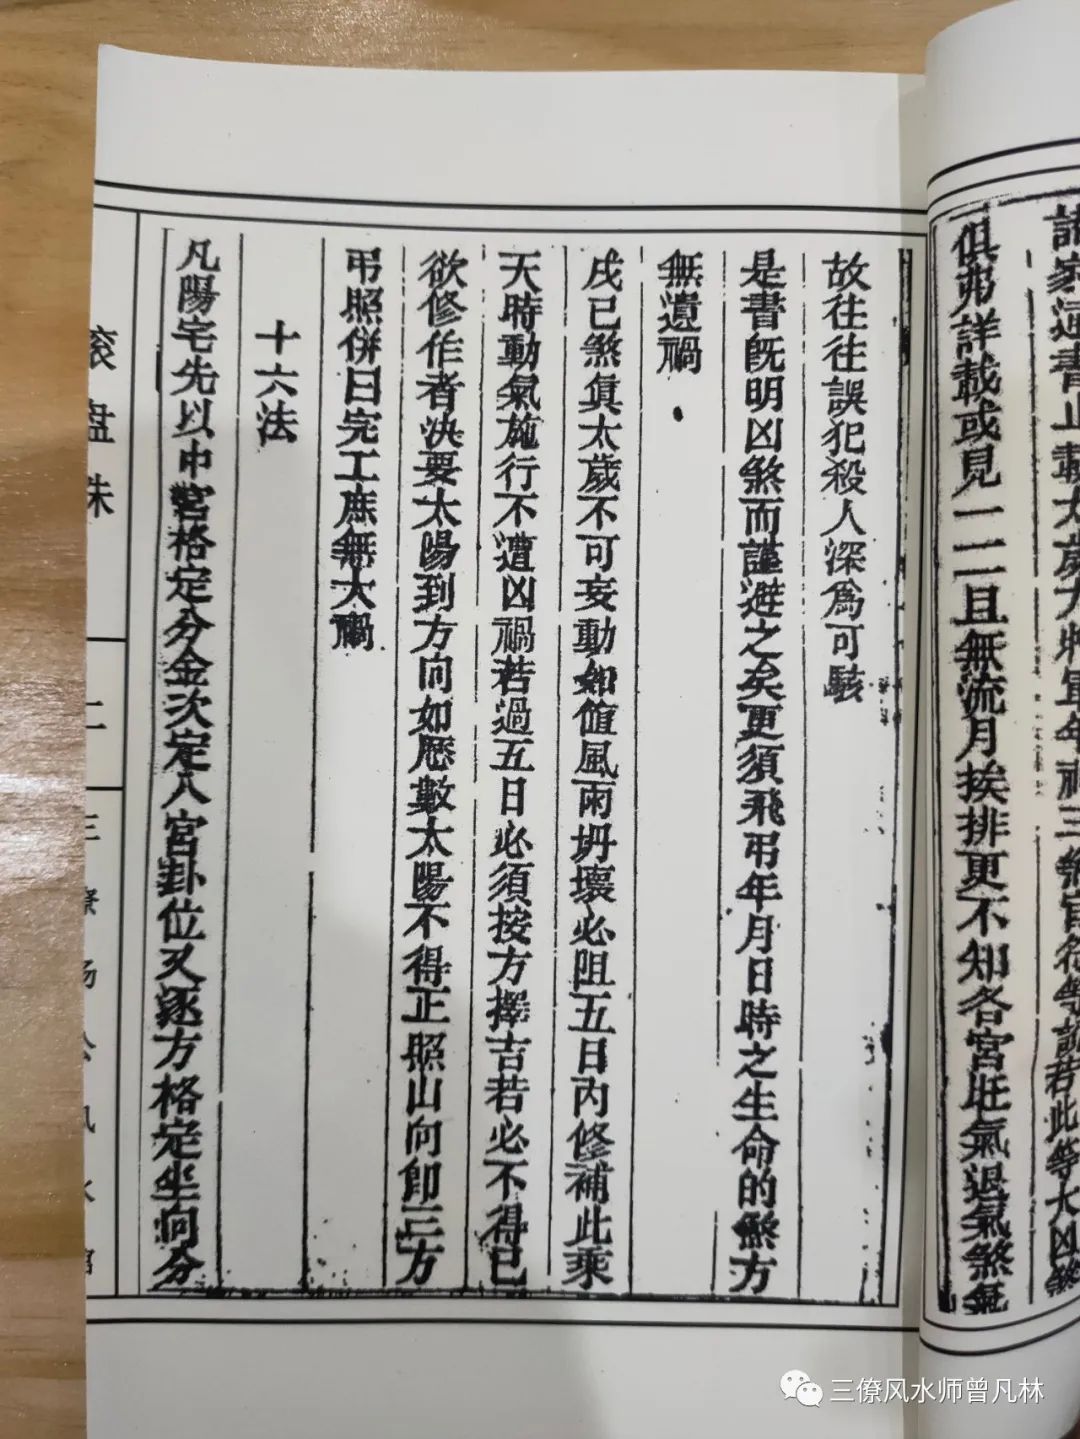 諸家通書止載太歲大將軍年禍三煞官符等說若此等大凶煞
俱弗詳載或見一二且無流月挨排更不知各宮旺氣退氣煞氣
故往往誤犯殺人深爲可駭
是書旣明凶煞而謹避之矣更須飛弔年月日時之生命的煞方
無遺禍
戌巳煞眞太歲不可妄動如値風雨坍壞必阻五日內修補此乘
天時動氣施行不遭凶禍若過五日必須按方擇吉若必不得已
欲修作者決要太陽到方向如歷數太陽不得正照山向卽三方
弔照併日完工庶無大禍
十六法
凡陽宅先以中宮格定分金次定八宮卦位又逐方格定坐向分
滚盘珠
二
三僚杨公风水馆
三僚风水师曾凡林